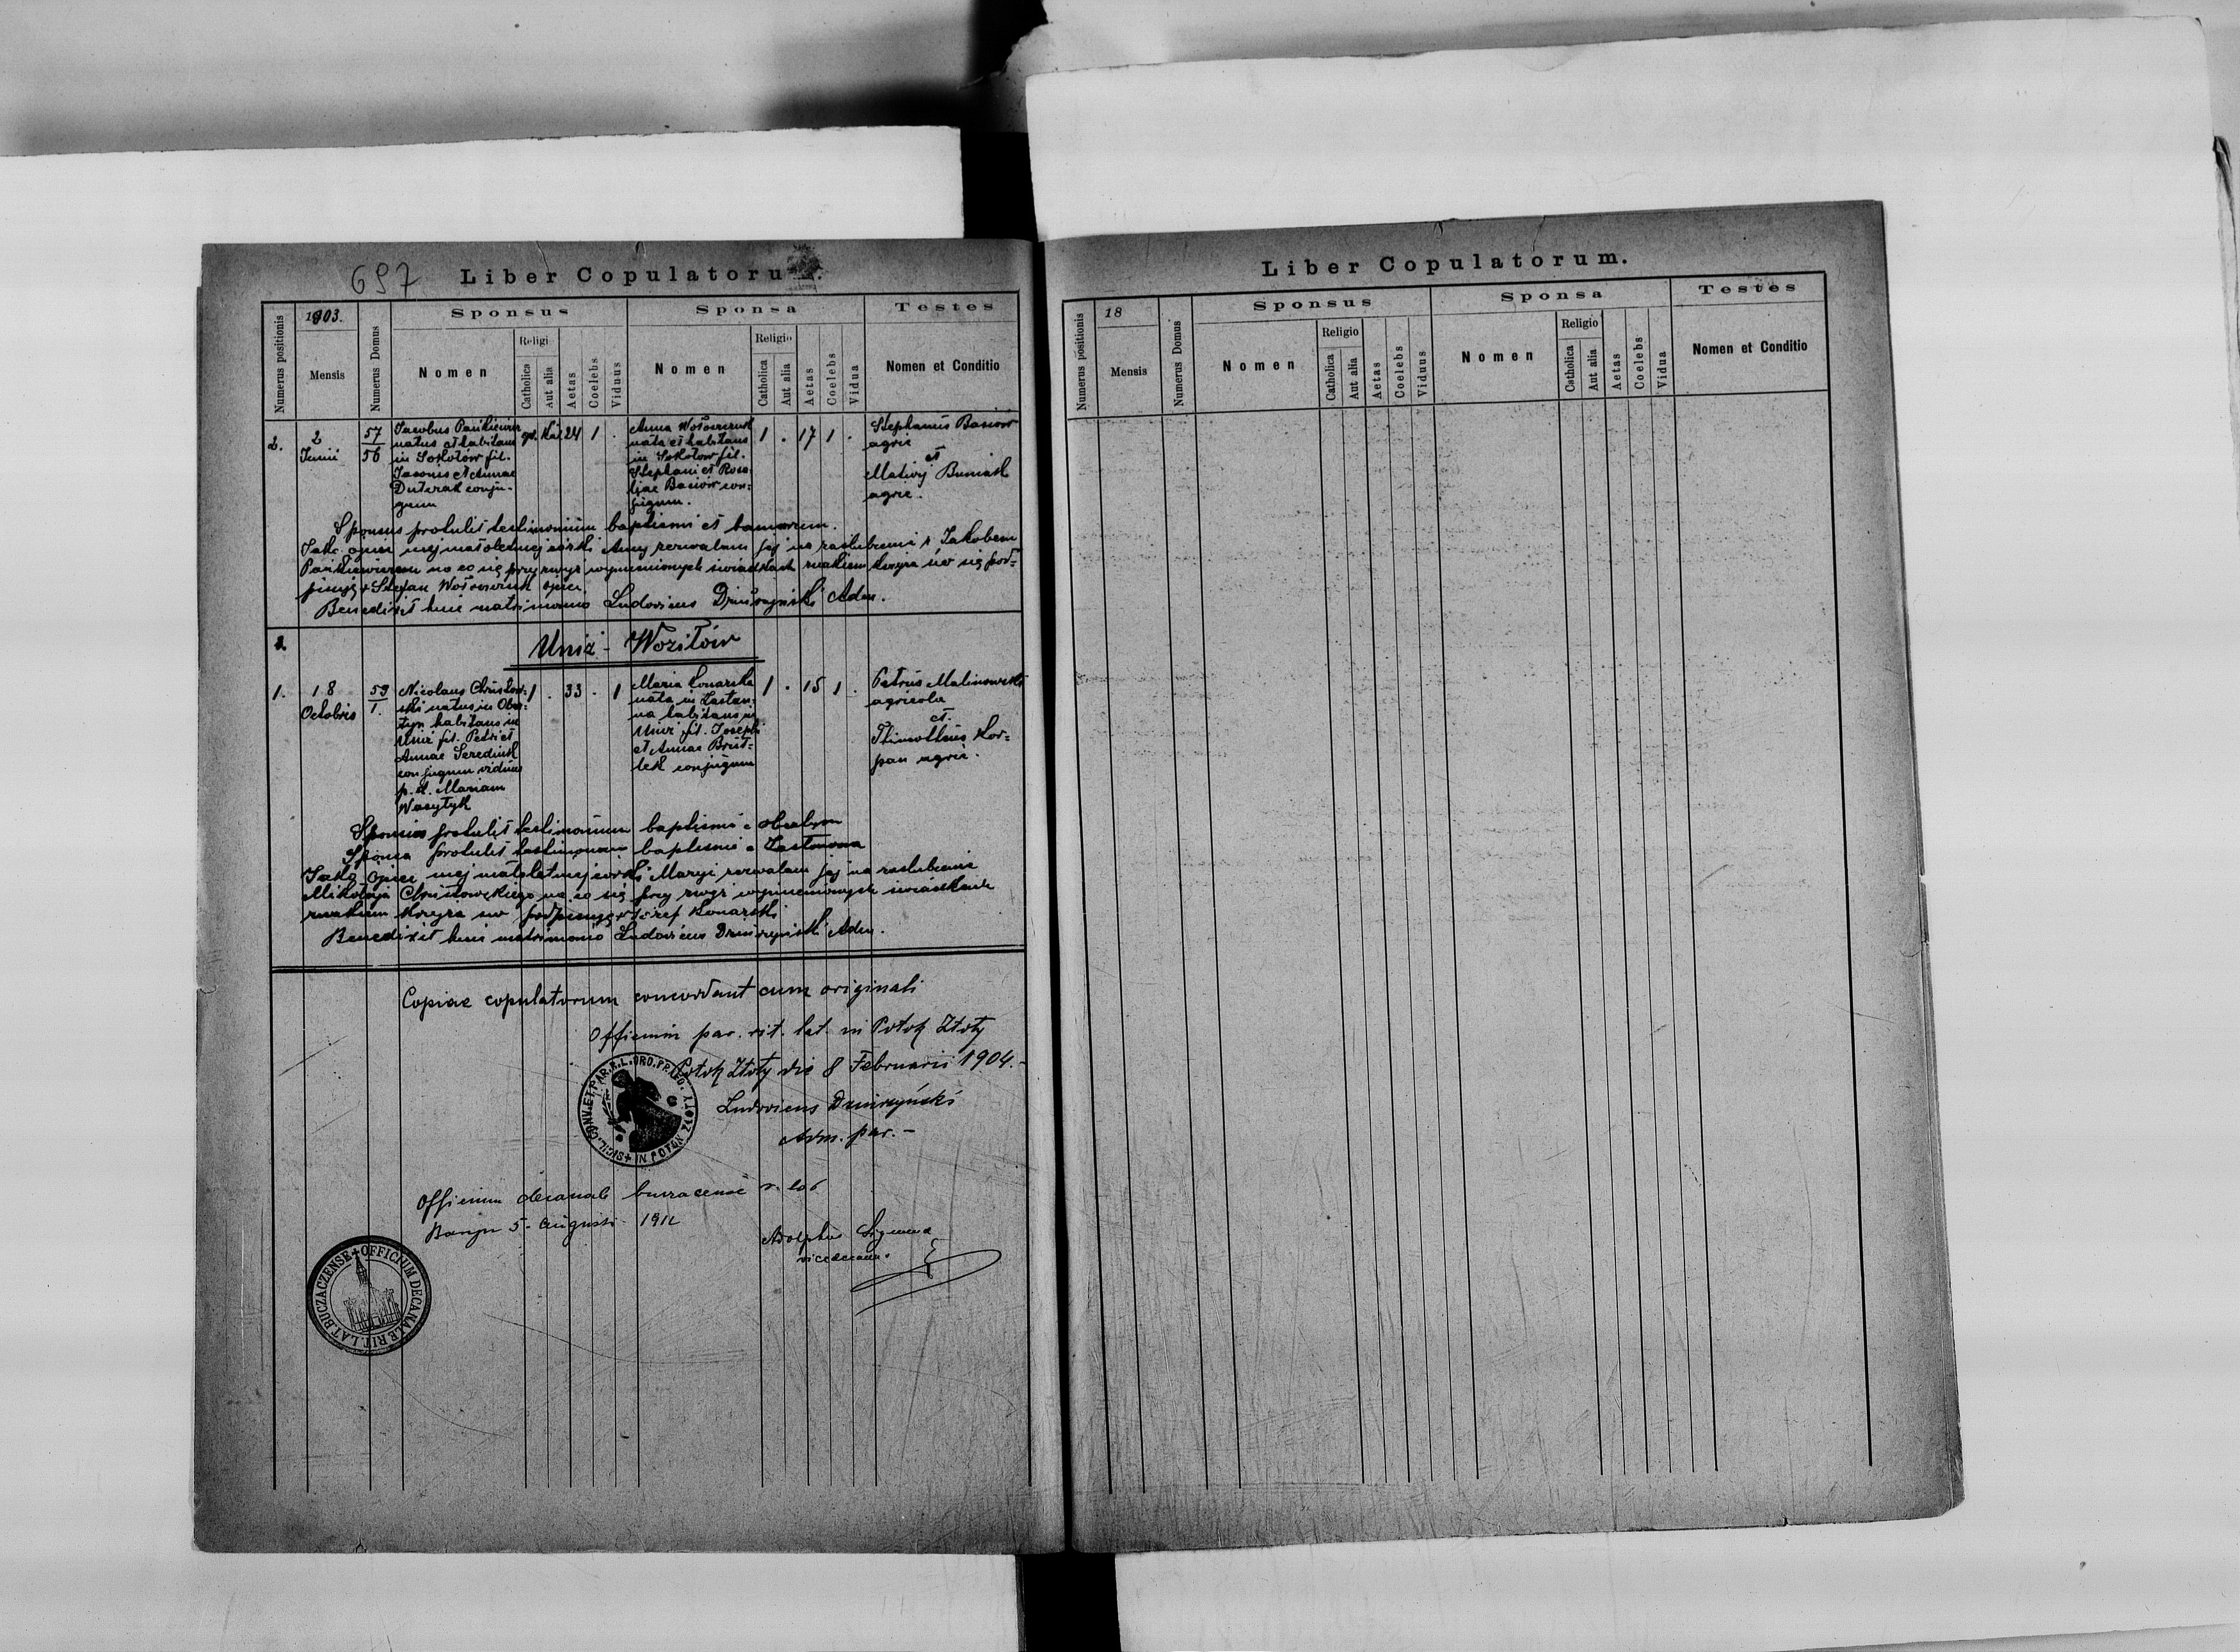 697
Liber Copulatorum.
Numerus positionis
1903.
Mensis
Numerus Domus
Sponsus
Nomen
Religi
Catholica
Aut alia
Aetas
Coelebs
Viduus
Sponsa
Nomen
Religio
Catholica
Aut alia
Aetas
Coelebs
Vidua
Testes
Nomen et Conditio
2.
2
Junii
57
56
Jacobus Pańkiewicz
natus et habitans
in Sokołów fil.
Jasonis et Annae
Duterak conju-
gum
gr. Kat 24 1 .
Anna Wołoszczuk
nata et habitans
in Sokołów fil.
Stephani et Rosa-
liae Basiów con-
jugum.
1 . 17 1 .
Stephanus Basiów
agric
et
Matwij Buniak
agric.
Sponsus protulit testimonium baptismi et bannorum.
Jako ojciec mej małoletniej córki Anny zezwalam jej na zaślubienie z Jakobem
Pańkiewiczem na co się przy zwyż wymienionych świadkach znakiem krzyża św się pod-
pisuję + Stefan Wołoszczuk ojciec
Benedixit huic matrimonio Ludovicus Dziurzyński Adm.
2
Uniż - Woziłów
1.
18
Octobris
59
1.
Nicolaus Christow-
ski natus in Ober-
tyn habitans in
Uniż fil. Petri et
Annae Serediuk
conjugum viduus
p. d. Mariam
Wasyłyk
1 . 33 . 1
Maria Konarska
nata in
habitans in
Uniż fil. Josephi
et Annae
conjugum
1 . 15 1 .
Petrus Malinowski
agricola
et.
Thimotheus Kor-
pan agric.
Sponsus protulit testimonium baptismi e Obertyn
Sponsa protulit testimonium baptismi e
Jako ojciec mej małoletniej córki Maryi zezwalam jej na zaślubienie
Mikołaja Christowskiego na co się przy zwyż wymienionych świadkach
znakiem krzyża św podpisuję + Józef Konarski
Benedixit huic matrimonio Ludovicus Dziurzyński Adm.
Copiae copulatorum concordant cum originali
Officium par. rit. lat. in Potok Złoty
Potok Złoty die 8 Februarii 1904.-
Ludovicus Dziurzyński
Adm. par. -
SIGIL. CONV. ET PAR. R. L. ORD. PRAED. IN POTOK ZŁOTY
Officium decanale buczacense r. lat
5. Augusti 191
Adolphus
vicedecanus
OFFICIUM DECANALE RIT. LAT. BUCZACZENSE
Liber Copulatorum.
Numerus positionis
18
Mensis
Numerus Domus
Sponsus
Nomen
Religio
Catholica
Aut alia
Aetas
Coelebs
Viduus
Sponsa
Nomen
Religio
Catholica
Aut alia
Aetas
Coelebs
Vidua
Testes
Nomen et Conditio